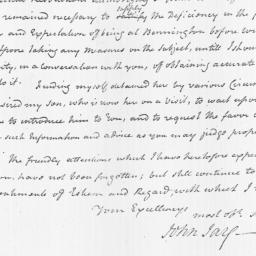 supply
remained necessary to rectify the Deficiency in the
and Expectation of being at Bennington before
before taking any Measures on the subject, until I should
in a conversation with you, of obtaining accurate
to it. Finding myself detained here by various
desired my Son, who is now here on a visit, to wait upon
to introduce him to You, and to request the favor
such Information and advice as you may judge proper
The friendly attentions which I have heretofore
have not been forgotten; but still continue to
Sentiments of Esteem and Regard, with which I
Your Excellency's
most obt. 
John Jay